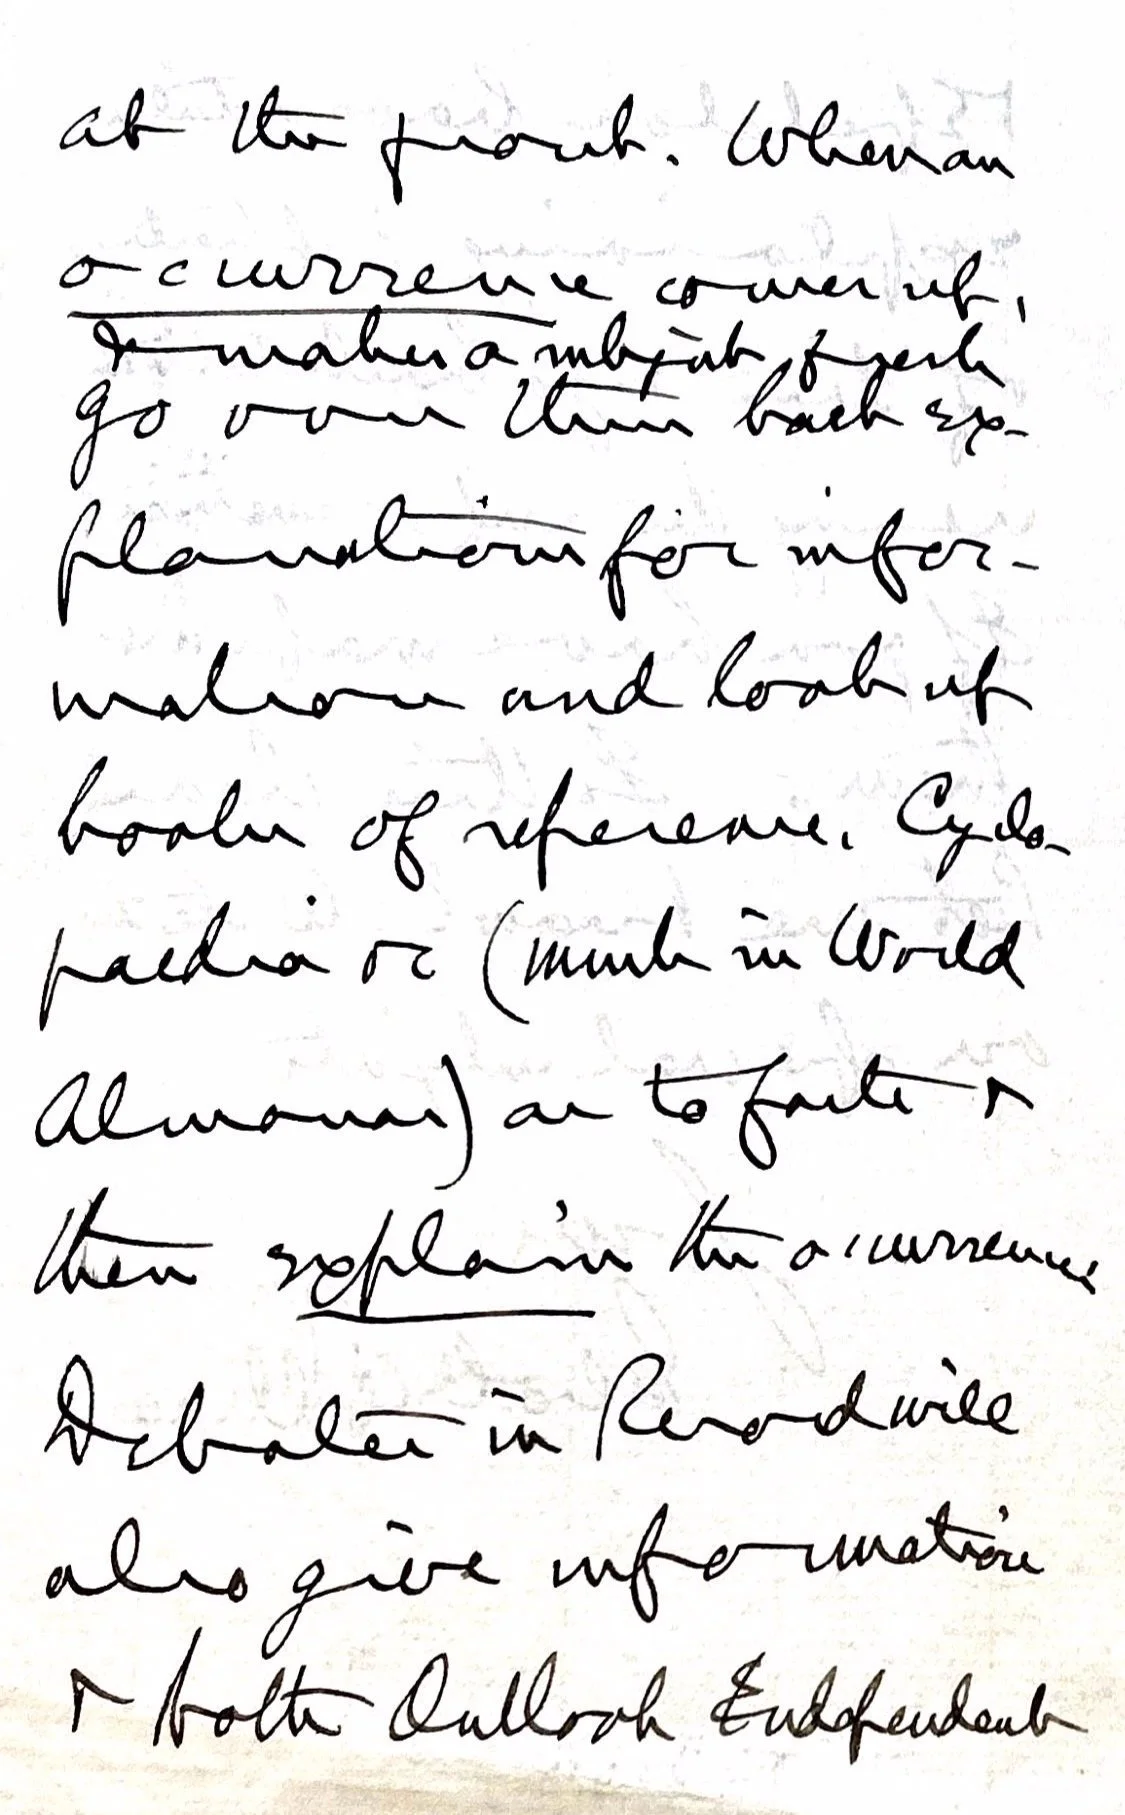 at the front. When an
occurrence comes up,
& makes a subject fresh
go over their back ex-
planations for infor-
mation and look up
books of reference. Cyclo-
paedia or (much in World
Almanac) as to facts &
then explain the occurrence
Debates in Record will
also give information
& both Outlook & Independent